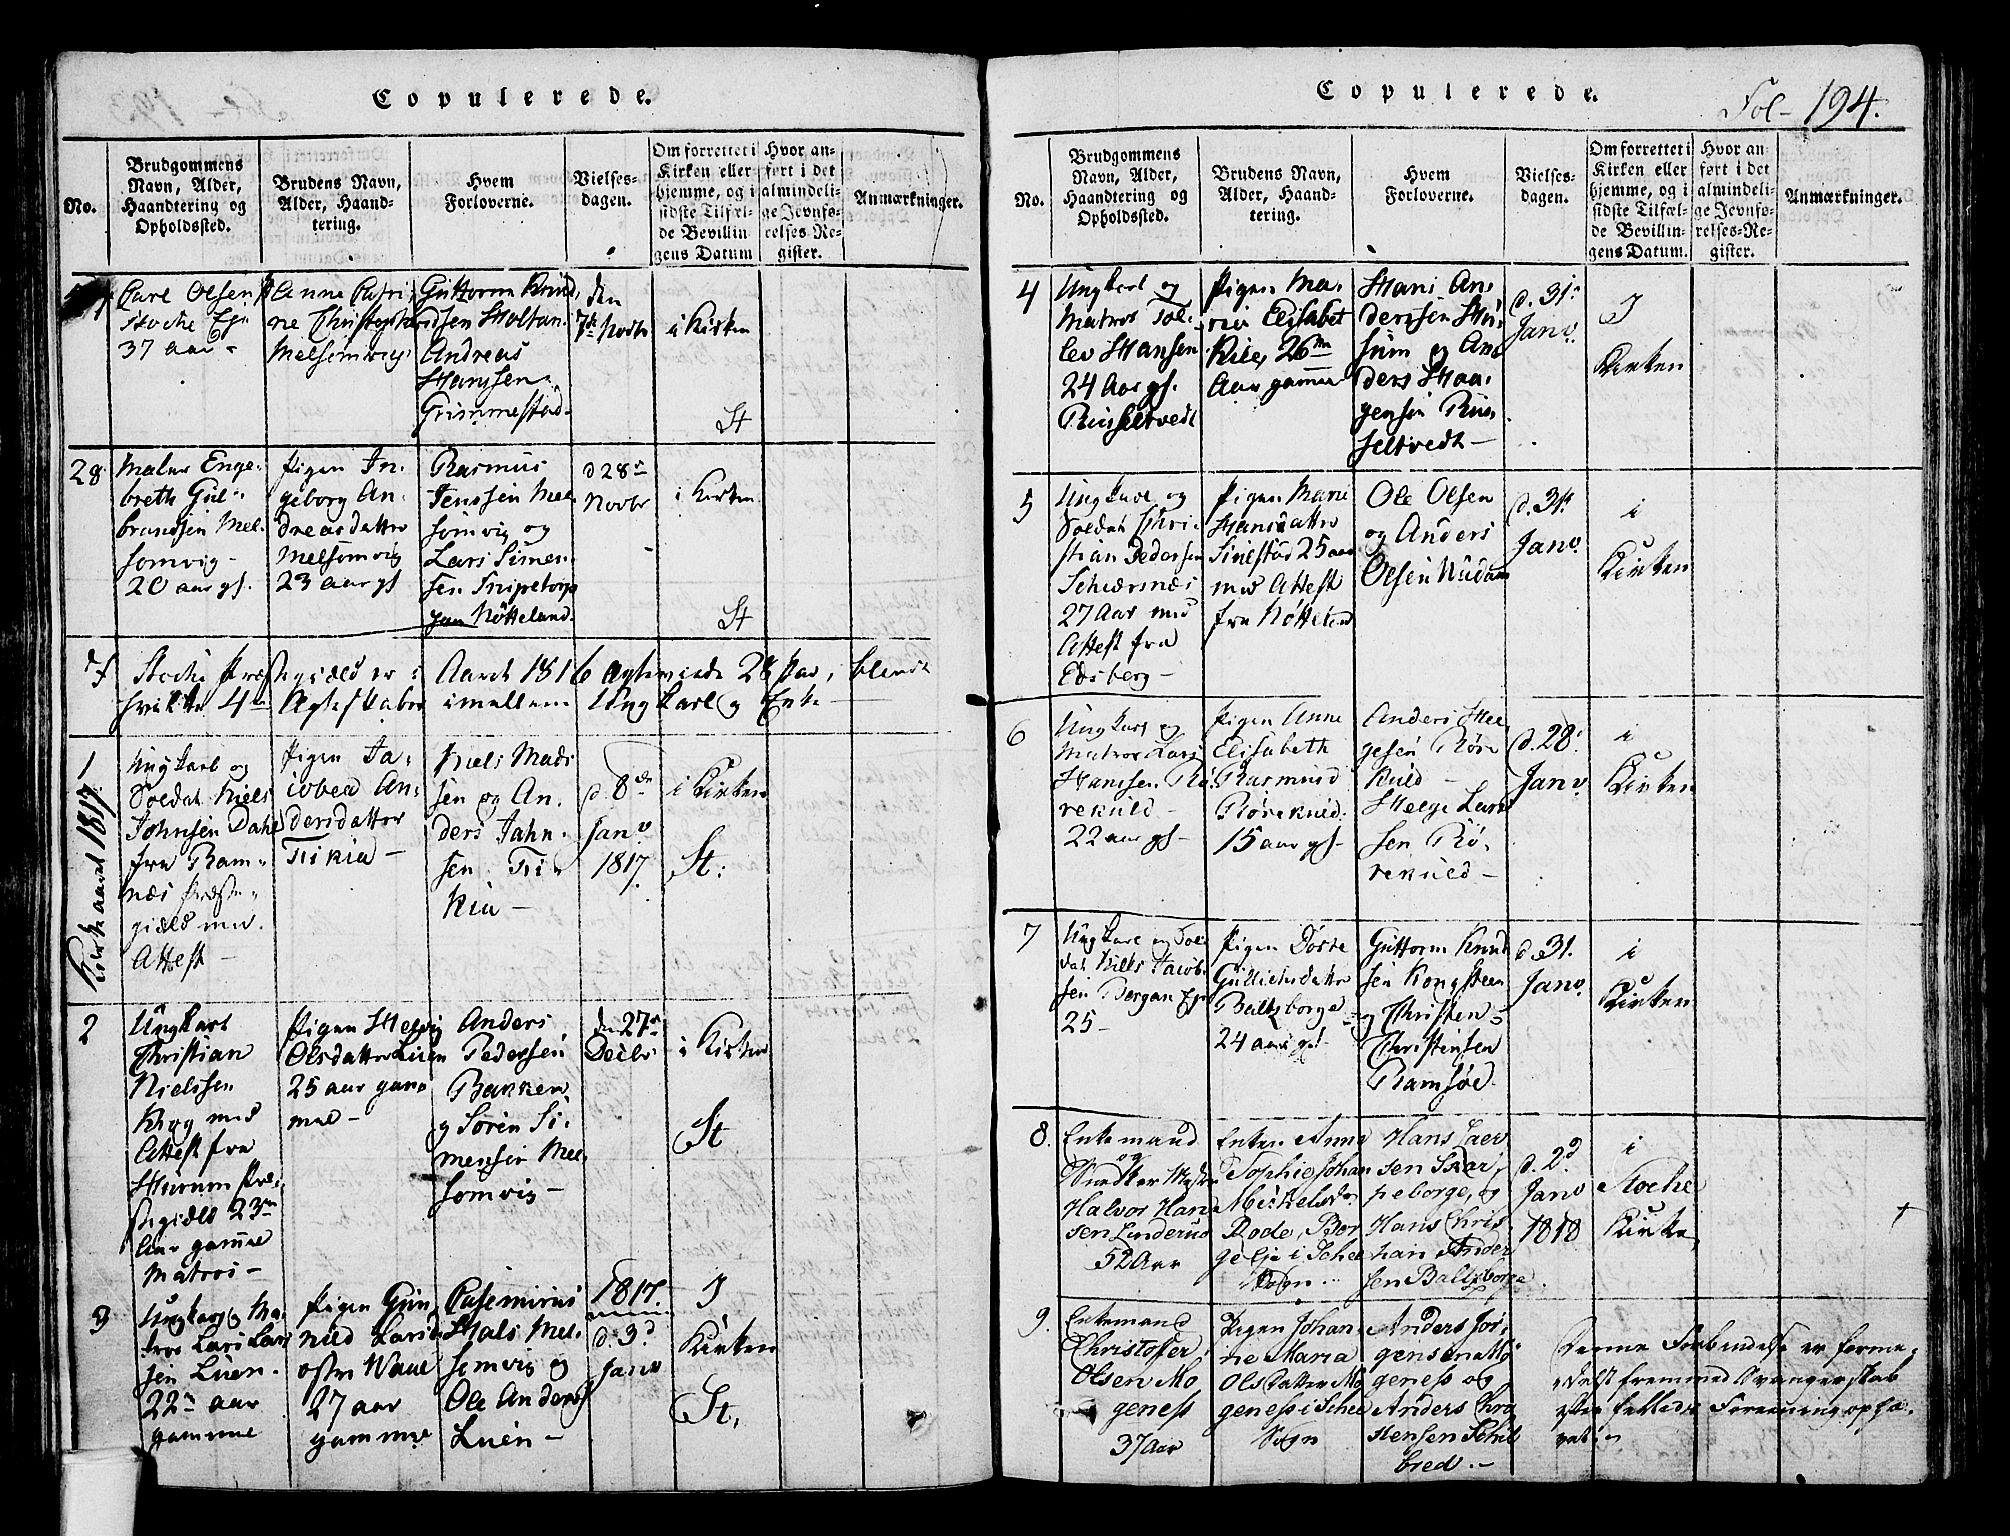 Copulerede.
No.
Brudgommens
Navn, Alder,
Haandtering og
Opholdssted.
Brudens Navn,
Alder, Haand-
tering.
Hvem
Forloverne.
Vielses-
dagen.
Om forrettet i
Kirken eller
hjemme, og i
sidste Tilfæl-
de Bevillin
gens Datum
Hvor an-
ført i det
almindeli-
ge Jevnfø-
relses-Re-
gister.
Anmærkninger.
Carl Olsen
Stoche
37 aar -
Anne
ne
Melsomvig
Guttorm
Holtan
Andreas
Hanssen
Grimmestad-
den
7de Novbr
i Kirken
St
28
Enge-
breth Gul-
brandsen Mel-
somvig -
20 aar gl.
Pigen In-
geborg An-
dreasdatter
Melsomvig
23 aar gl
Rasmus
Jenssen Mel-
somvig og
Lars Simen-
sen
Nötteland.
d 28de
Novbr
i Kirken
St
Aaret 1816
28 Par,
imellem Ungkarl og Enke
Kirkeaaret 1817
1
Ungkarl og
Soldat Niels
Johnsen Dahl
fra Ram-
næs Præste-
gield med
Attest -
Pigen Ja-
cobea An-
dersdatter
Firkia -
Niels Mad-
sen og An-
ders
sen
d. 8de
Janv
1817.
i Kirken
St:
2
Ungkarl
Christian
Nielssen
Krog med
Attest fra
Hurum Præ-
stegield 23
aar gamme
Matros -
Pigen Helvig
Olsdatter Luen
25 aar gam-
mel -
Anders
Pedersen
Bakken
og Sören Si-
mensen Mel-
somvig -
den 27de
Decbr
i Kirken
St
3
Ungkarl og Ma-
tros Lars Lars
sen Luen -
22 aar
gamme
Pigen Gun-
nild Larsd
27 aar
gamme
Casemirus
Hals Mel-
somvig og
Ole Anders
Luen -
1817.
d. 3d
Janv
I
Kirken
St,
Copulerede.
Fol- 194.
No.
Brudgommens
Navn, Alder,
Haandtering og
Opholdssted.
Brudens Navn,
Alder, Haand-
tering.
Hvem
Forloverne.
Vielses-
dagen.
Om forrettet i
Kirken eller
hjemme, og i
sidste Tilfæl-
de Bevillin-
gens Datum.
Hvor an-
ført i det
almindeli-
ge Jevnfø-
relses-Re-
gister.
Anmærkninger.
4
Ungkarl og
Matros Tol-
lev Hansen
24 Aar gl.
Russeltvedt
Pigen Ma-
rie Elisabet
26
Aar gamme
Hans An-
derssen Hu-
sum og An-
ders Haa-
gensen Rus-
seltvedt -
d. 31
Janv.
I
Kirken
5
Ungkarl og
Soldat Chri-
stian Pedersen
27 Aar med
Attest fra
Edsberg -
Pigen Marie
Hansdatter
25 aar
med Attest
fra Nötteland
Ole Olsen
og Anders
Olsen
d. 31te
Janv.
i
Kirken
6
Ungkarl og
Matros Lars
Hanssen Rö-
rekuld -
22 aar gl -
Pigen Anne
Elisabeth
Rasmusd
Rörekuld.
15 aar gl -
Anders Hel-
gesen Röre
kuld -
Helge Lars
sen Rö-
rekuld -
d. 28.
Janv.
i
Kirken
7
Ungkarl og Sol-
dat Niels Jacob-
sen Bergan
25 -
Pigen Dorte
datter
Baltsborge
24 aar gl
Guttorm Knud
sen Kongsteen
og Christen
Christensen
Ramsöe.
d. 31.
Janv.
i
Kirken
8.
Enkemand
og
Halvor Han-
sen Linderud
52 Aar
Enken Anne
Sophie Johan
Mickelsdr
Rode, Bor
ge Eje i Schee
Sogn -
Hans Laer
sen Skar-
peborge, og
Hans Chris
tian Ander
sen Baltsborge.
d. 2d
Janv
1818
i
Stoche
Kirke
+
9.
Enkemand
Christofer
Olsen Mo
geness
37 Aar
Pigen Johan-
ne Maria
Olsdatter Mo
geness i Schee
Sogn
Anders Jör-
gensen Mo
geness og
Anders Chri
stensen Schil
bred. -
Denne Forbindelse er forme-
delst fremmed Svangerskab
ved fælleds Forening ophæ-
vet -